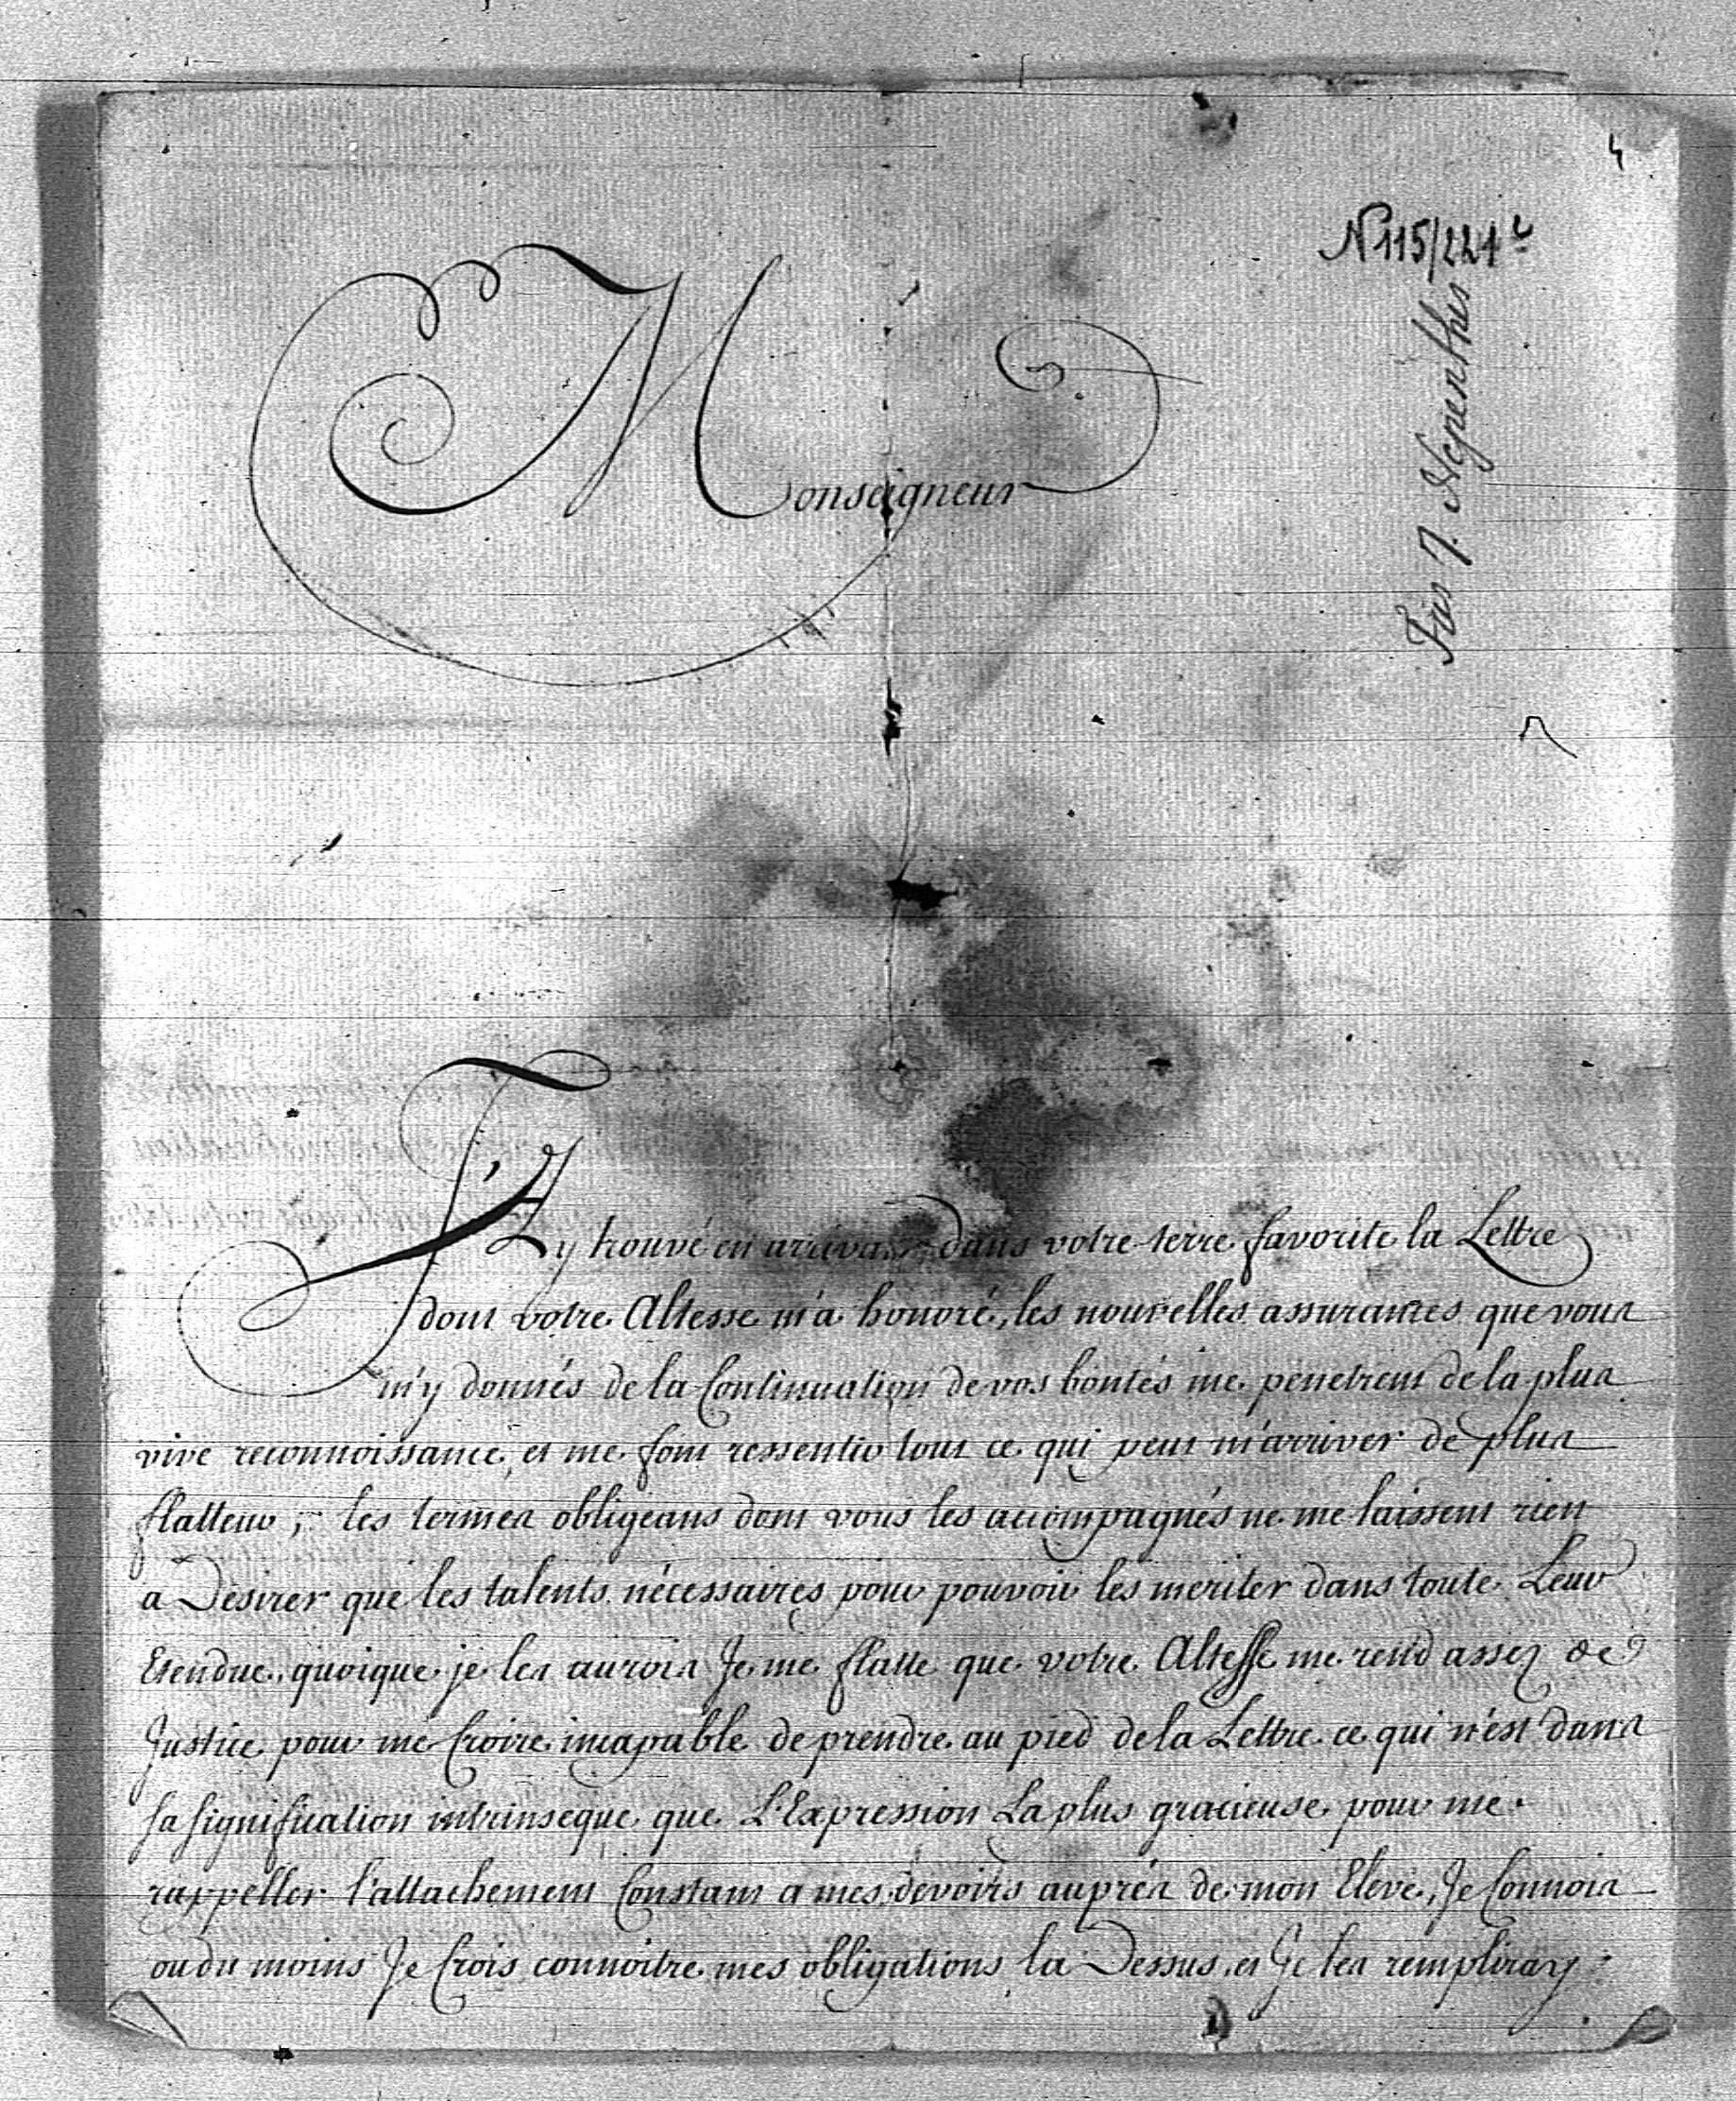 4
N 115/224
Monseigneur
J'Ay trouvé en arrivant dans votre terre favorite la Lettre
dont votre Altesse m'a honoré, les nouvelles assurances que vous
m'y donnés de la Continuation de vos bontés me penetrent de la plus
vive reconnoissance, et me font ressentir tout ce qui peut m'arriver de plus
flatteur, les termes obligeans dont vous les accompagnés ne me laissent rien
a Desirer que les talents nécessaires pour pouvoir les meriter dans toute Leur
Etendue, quoique je les aurois Je me flatte que votre Altesse me rend assez de
Justice pour me Croire incapable de prendre au pied de la Lettre ce qui n'est dans
sa signification intrinseque que L'Expression La plus gracieuse pour me
rappeller l'attachement Constant a mes devoirs auprés de mon Eleve, Je Connois
ou du moins Je Crois connoitre mes obligations la Dessus, et Je les rempliray